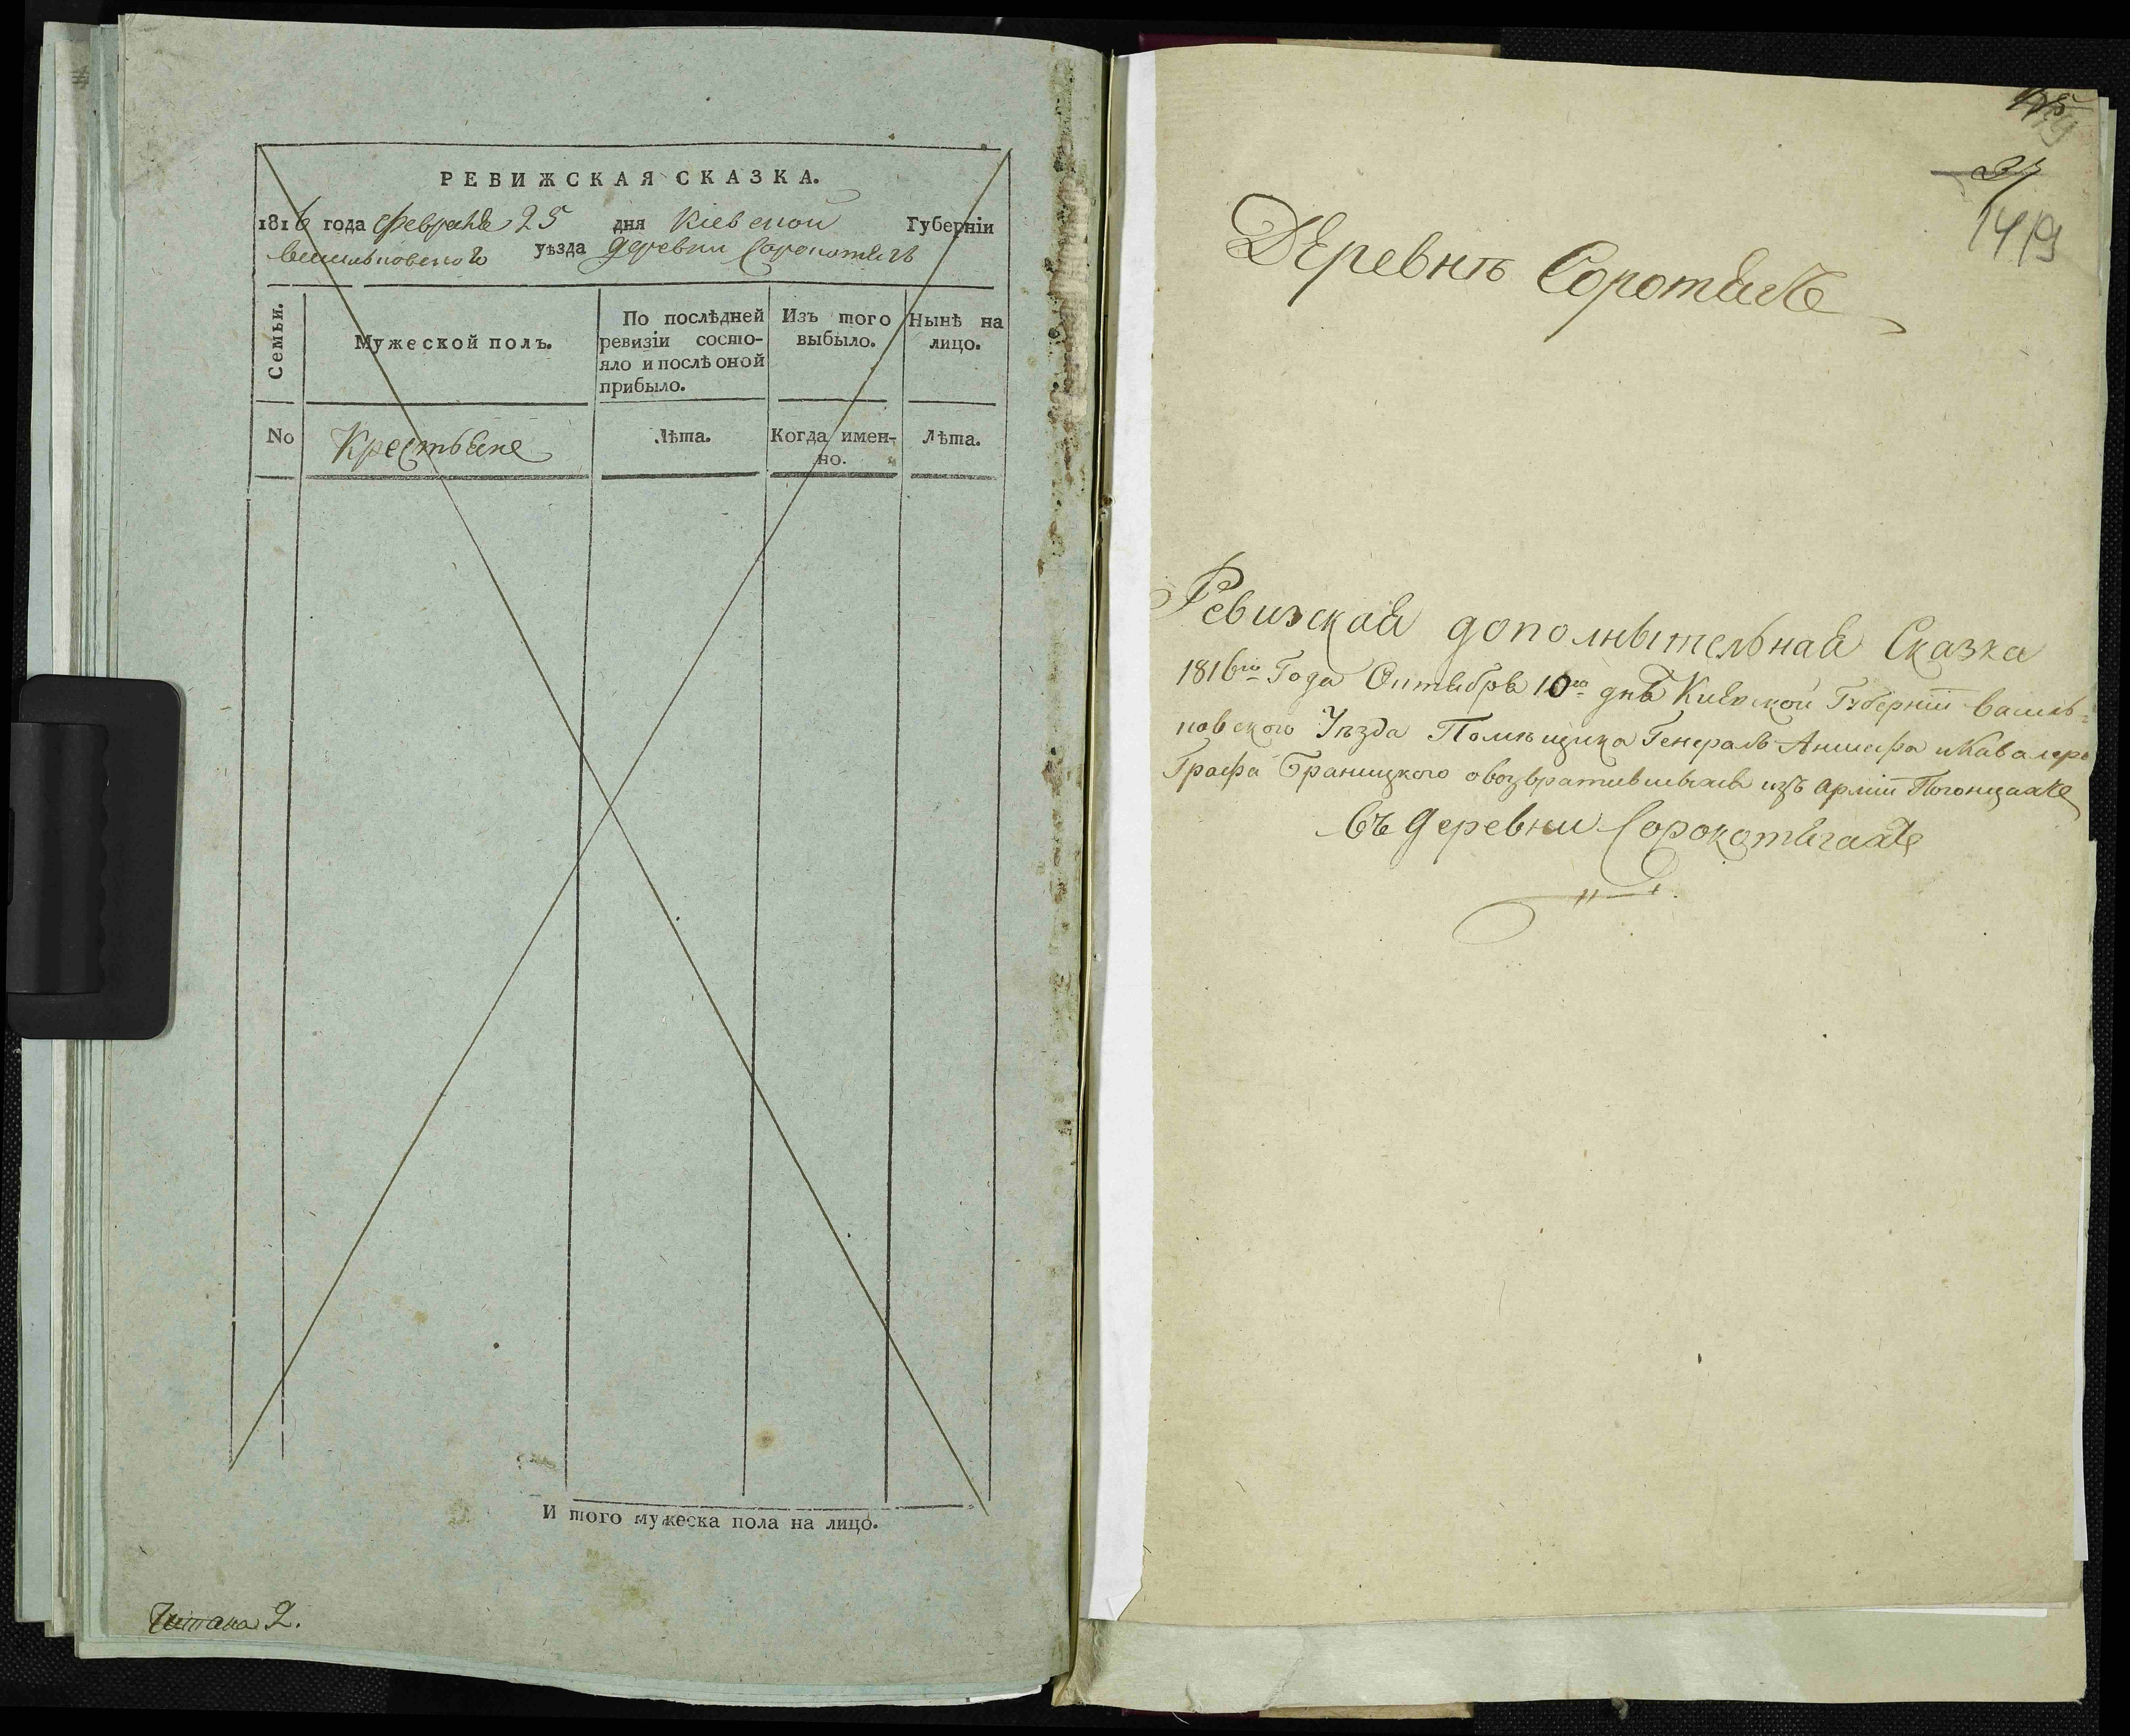 РЕВИЖСКАЯ СКАЗКА.
1816 года февраля 25 дня Кіевской Губерніи
Васильковского уѣзда деревни Сорокотягъ
Семьи.
Мужеской полъ.
По послѣдней
ревизіи состо-
яло и послѣ оной
прибыло.
Изъ того
выбыло.
Нынѣ на
лицо.
No
Крестьяне
Лѣта.
Когда имен-
но.
Лѣта.
И того мужеска пола на лицо.
2.
Деревнѣ
37
149
Ревизская дополнытельная Сказка
1816го Года Октября 10го дня Киевской Губерніи Василь=
ковского Уѣзда Помѣщика Генералъ Аншефа и Кавалера
Графа Браницкого овозвратившыхся изъ арміи Погонцахъ
Въ деревни Сорокотягахъ